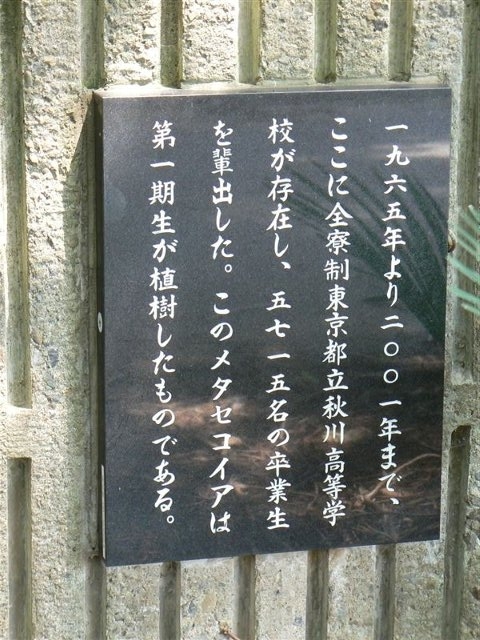 一九六五年より二〇〇一年まで、
ここに全寮制東京都立秋川高等学
校が存在し、五七一五名の卒業生
を輩出した。このメタセコイアは
第一期生が植樹したものである。